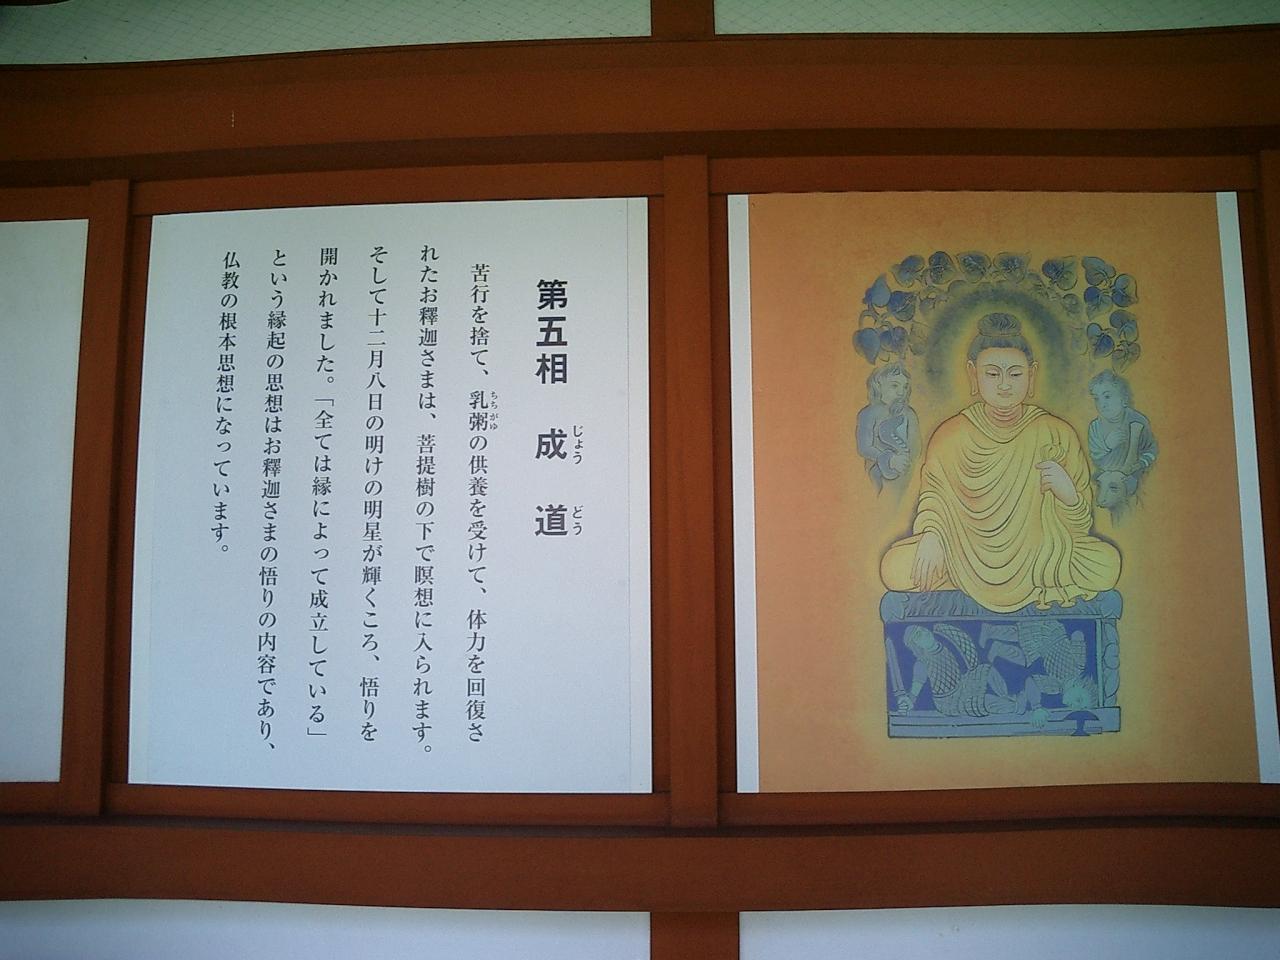 第五相 成道
じょう どう
苦行を捨て、乳粥の供養を受けて、体力を回復さ
ちちがゆ
れたお釋迦さまは、菩提樹の下で瞑想に入られます。
そして十二月八日の明けの明星が輝くころ、悟りを
開かれました。「全ては縁によって成立している」
という縁起の思想はお釋迦さまの悟りの内容であり、
仏教の根本思想になっています。